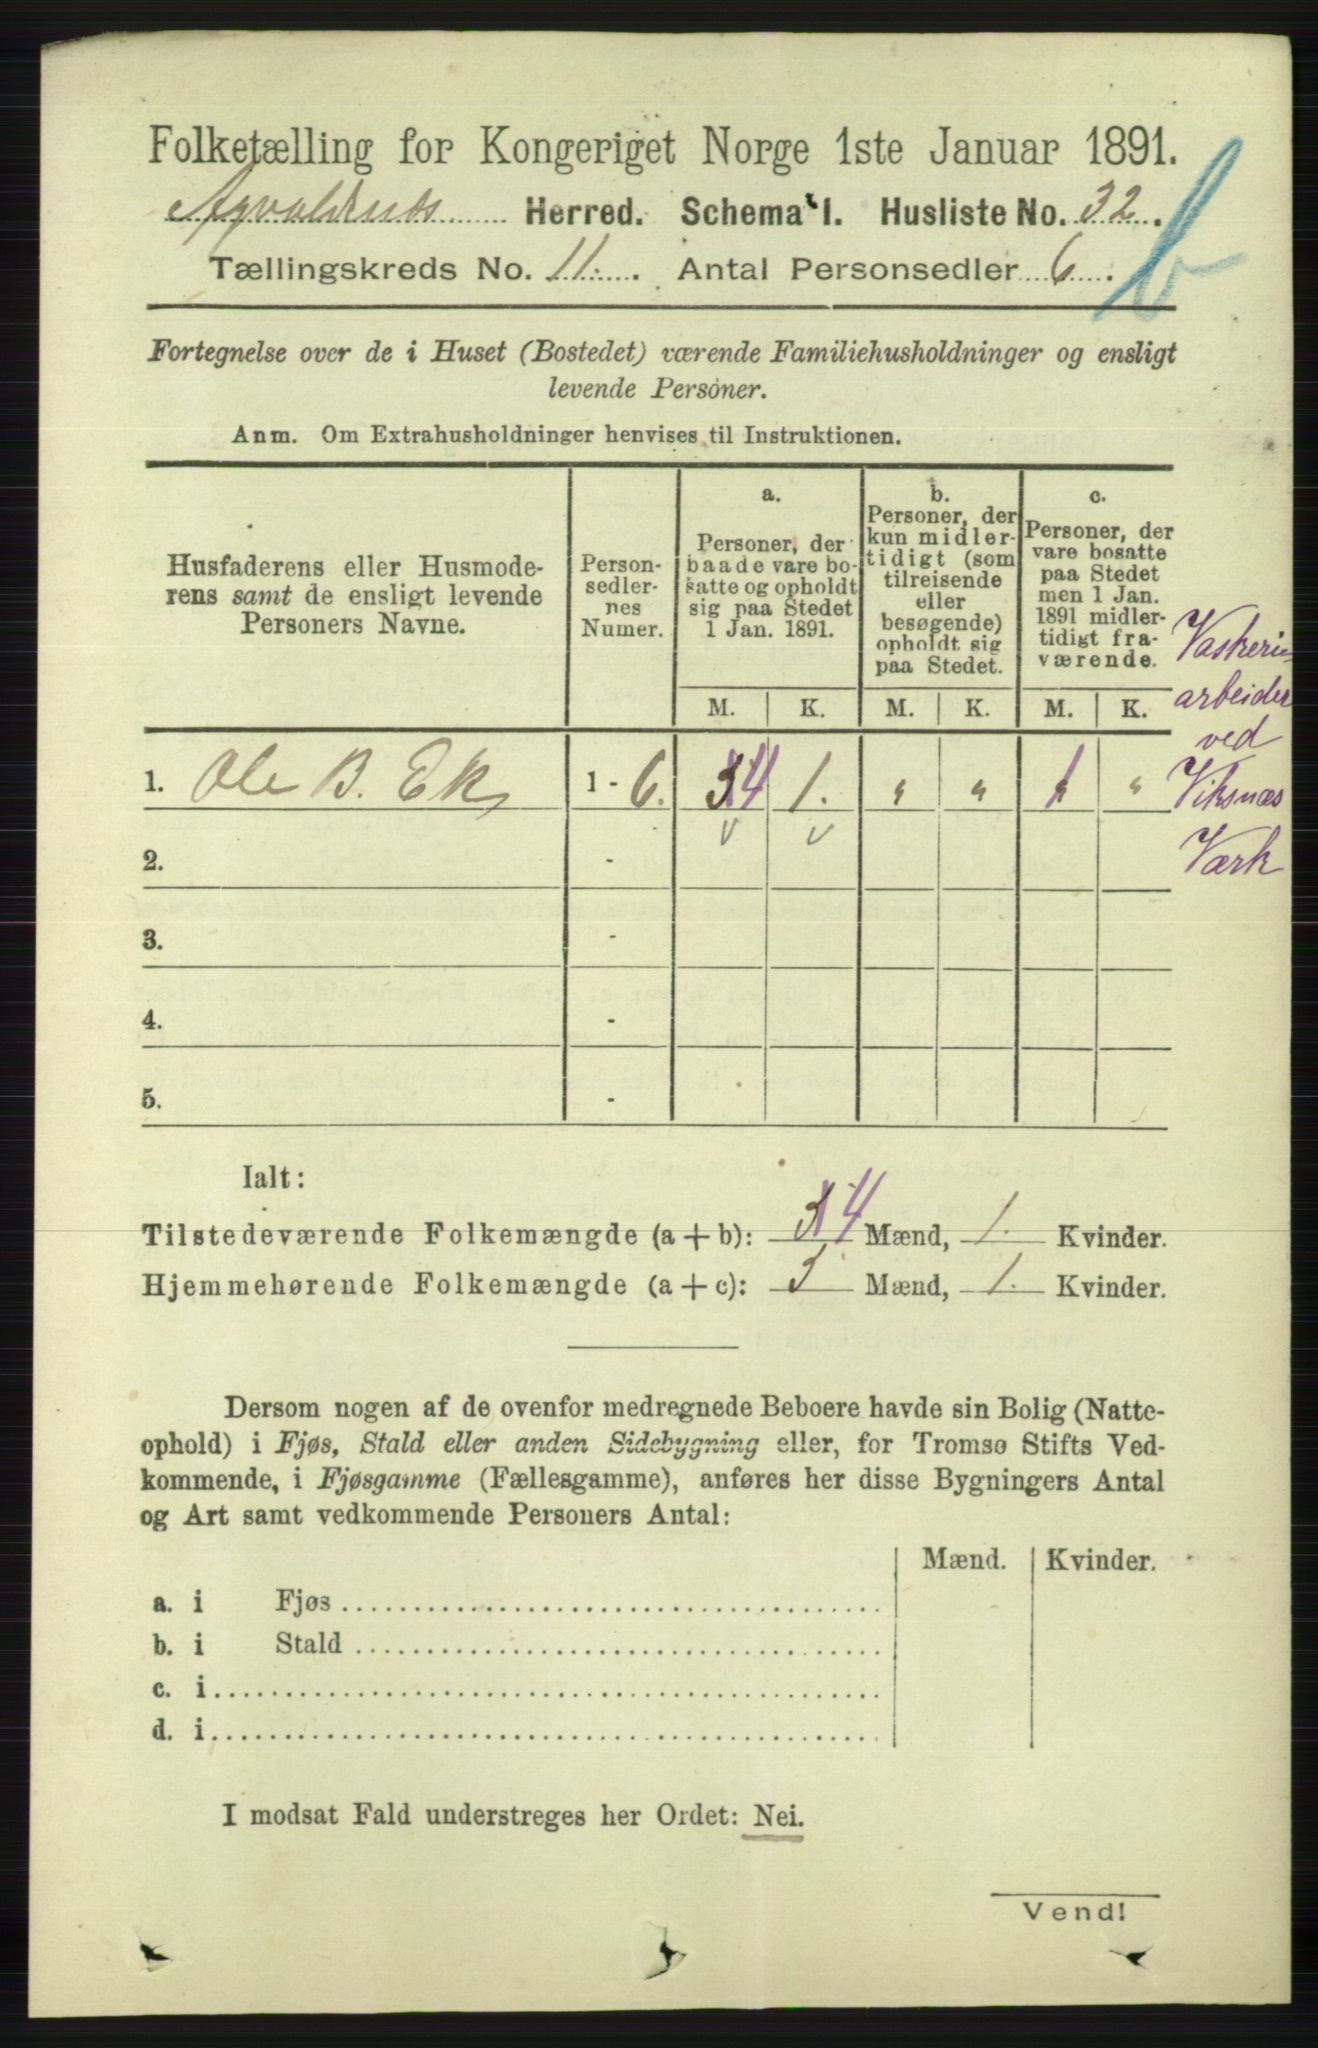 Folketælling for Kongeriget Norge 1ste Januar 1891.
Herred. Schema 1. Husliste No. 32.
Tællingskreds No. 11. Antal Personsedler 6.
Fortegnelse over de i Huset (Bostedet) værende Familiehusholdninger og ensligt
levende Personer.
Anm. Om Extrahusholdninger henvises til Instruktionen.
Husfaderens eller Husmode-
rens samt de ensligt levende
Personers Navne.
Person-
sedler-
nes
Numer.
a.
Personer, der
baade vare bo-
satte og opholdt
sig paa Stedet
1 Jan. 1891.
b.
Personer, der
kun midler-
tidigt (som
tilreisende
eller
besøgende)
opholdt sig
paa Stedet.
c.
Personer, der
vare bosatte
paa Stedet
men 1 Jan.
1891 midler-
tidigt fra-
værende.
M. K. M. K. M. K.
Vaskeri-
arbeider
ved
Viksnæs
Værk
1. Ole B. Ek 1 - 6. 4 1. " " 1 "
2. -
3. -
4. -
5. -
Ialt:
Tilstedeværende Folkemængde (a + b): 4 Mænd, 1. Kvinder.
Hjemmehørende Folkemængde (a + c): 5 Mænd, 1. Kvinder.
Dersom nogen af de ovenfor medregnede Beboere havde sin Bolig (Natte-
ophold) i Fjøs, Stald eller anden Sidebygning eller, for Tromsø Stifts Ved-
kommende, i Fjøsgamme (Fællesgamme), anføres her disse Bygningers Antal
og Art samt vedkommende Personers Antal:
Mænd. Kvinder.
a. i Fjøs
b. i Stald
c. i
d. i
I modsat Fald understreges her Ordet: Nei.
Vend!